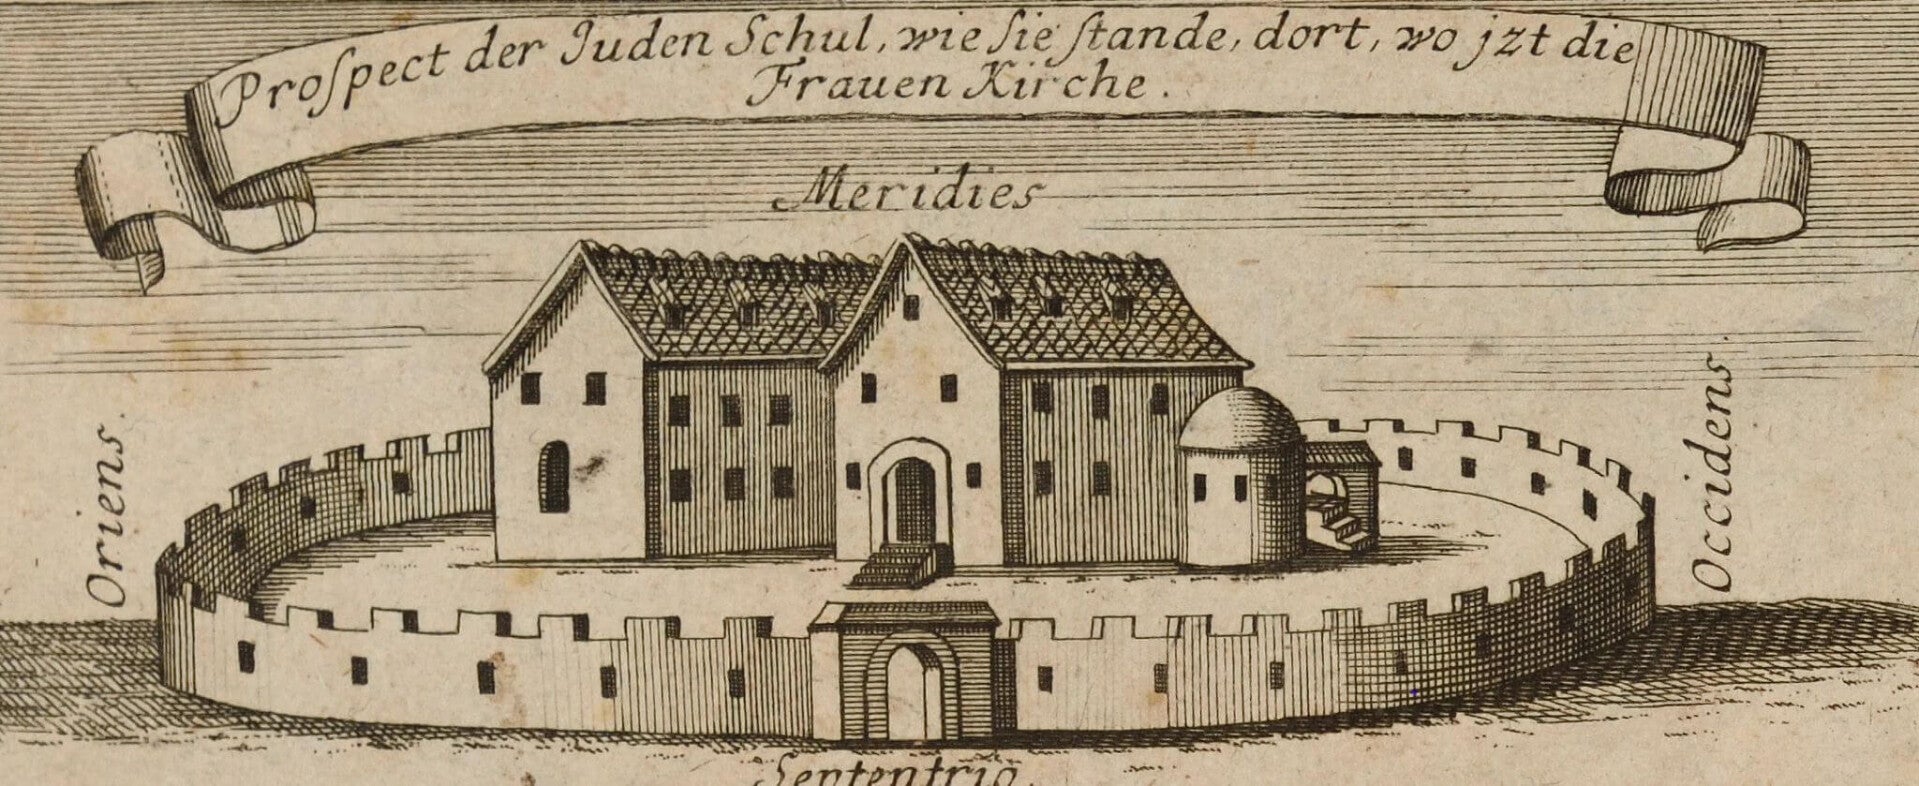 Proſpect der Juden Schul, wie ſie ſtande, dort, wo jzt die
Frauen Kirche.
Meridies
Oriens.
Occidens.
Septentrio.